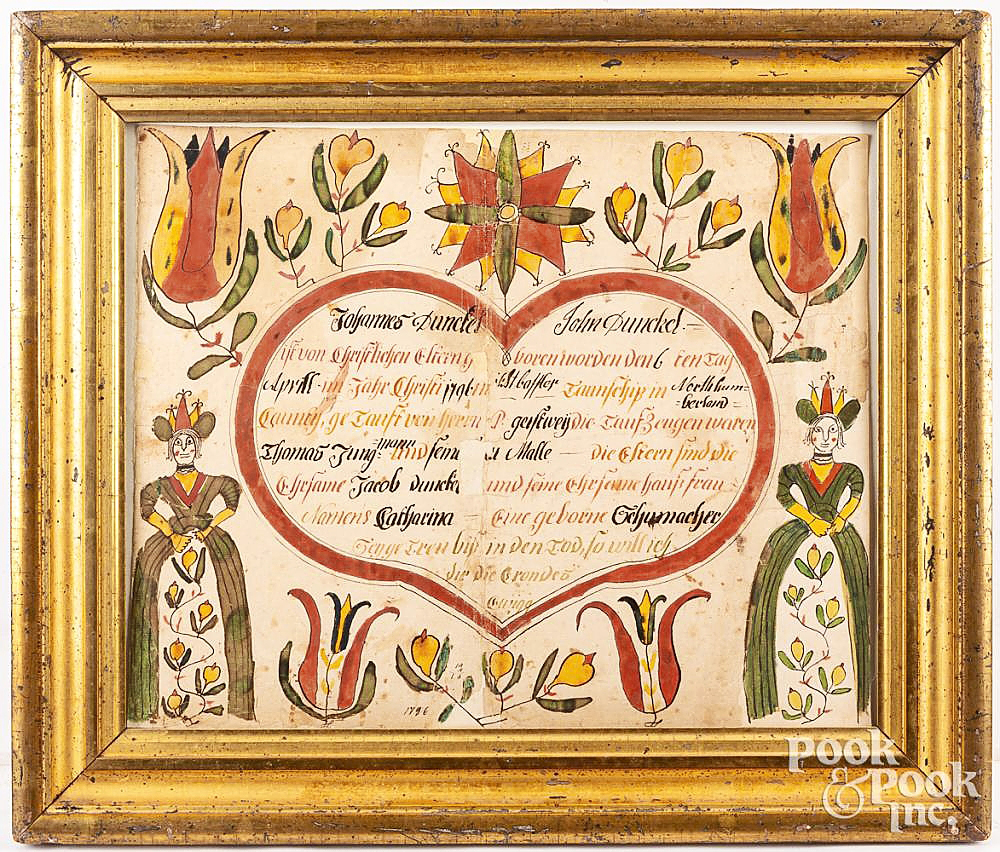 Johannes Dunckel John Dunckel.—
ist von Christlichen Eltern g boren worden den 6 ten Tag
Aprill im Jahr Christi 1796 in Taunschip in Northum-
berland —
Caunty, ge Tauft von Herrn P. geistweÿ die Tauf Zeugen waren
Thomas Jung mann und seine Malle — die Eltern sind die
Ehrsame Jacob dunckel und seine Ehrsame hausfrau
Namens Catharina — Eine geborne Schumacher
Seÿge Treu biß in den Tod, so will ich
dir die Cron des
1796
Pook
& Pook
Inc.